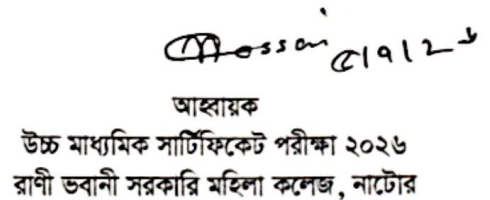 আহ্বায়ক
উচ্চ মাধ্যমিক সার্টিফিকেট পরীক্ষা ২০২৬
রাণী ভবানী সরকারি মহিলা কলেজ, নাটোর